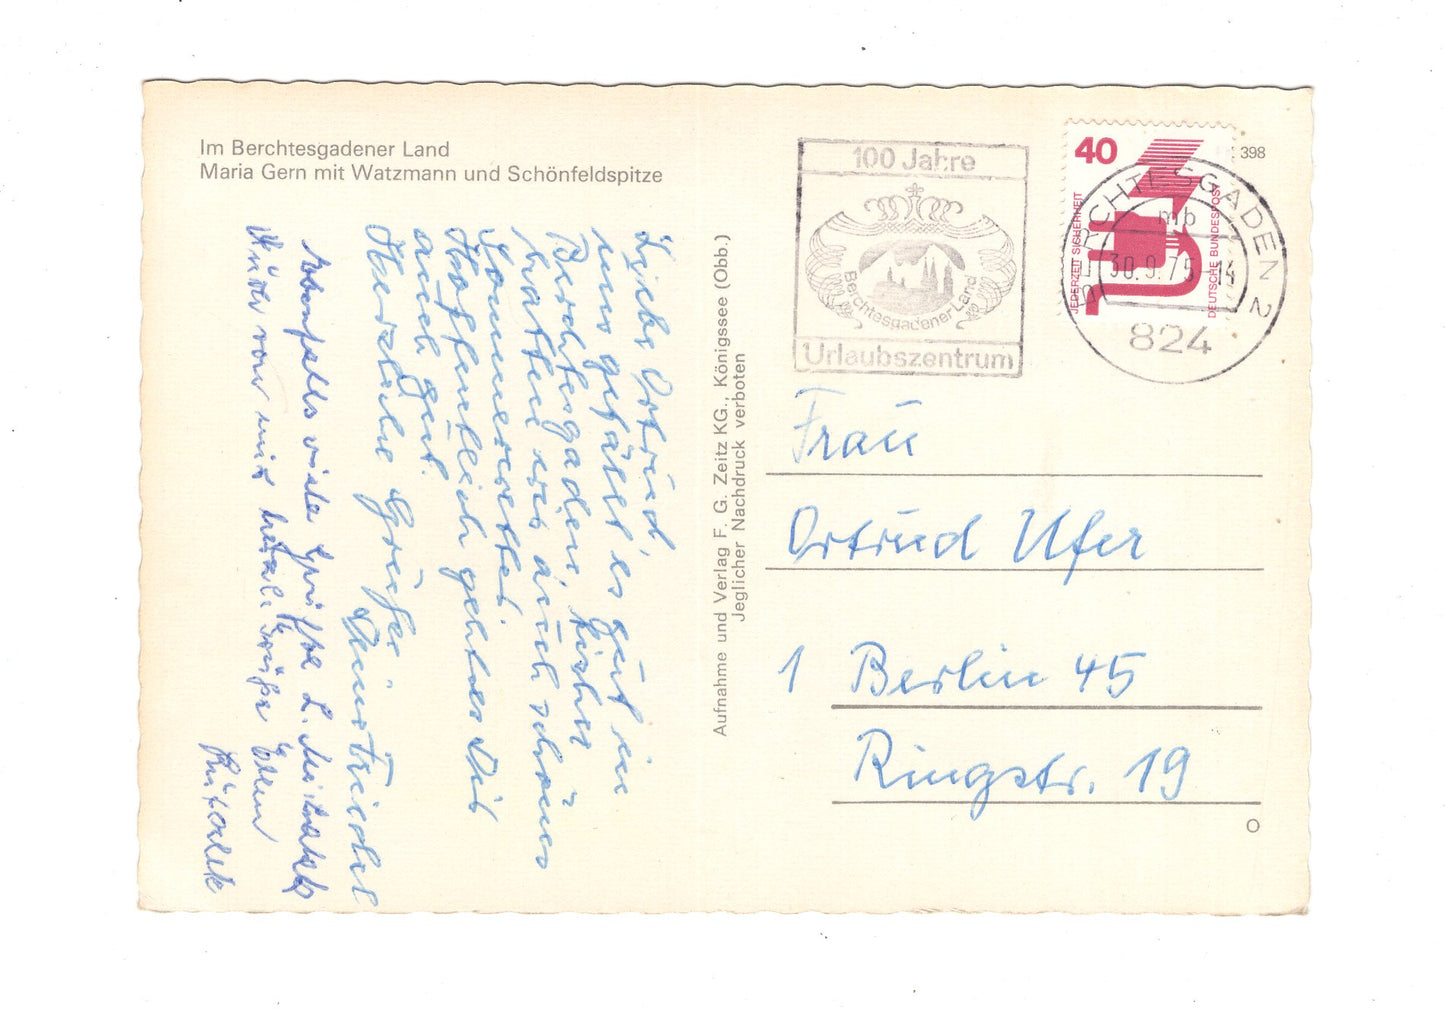 Im Berchtesgadener Land
Maria Gern mit Watzmann und Schönfeldspitze
Liebe Ortrud,
uns gefällt es gut in
Berchtesgaden, bisher
hatten wir auch schönes
Sommerwetter.
Hoffentlich geht es Dir
auch gut.
Herzliche Grüße
Deine Friedel
Ebenfalls viele Grüße
Aufnahme und Verlag F. G. Zeitz KG., Königssee (Obb.)
Jeglicher Nachdruck verboten
100 Jahre
Berchtesgadener Land
Urlaubszentrum
40
JEDERZEIT SICHERHEIT
DEUTSCHE BUNDESPOST
398
BERCHTESGADEN 2
mb
30.9.75-14
824
Frau
Ortrud Ufer
1 Berlin 45
Ringstr. 19
O